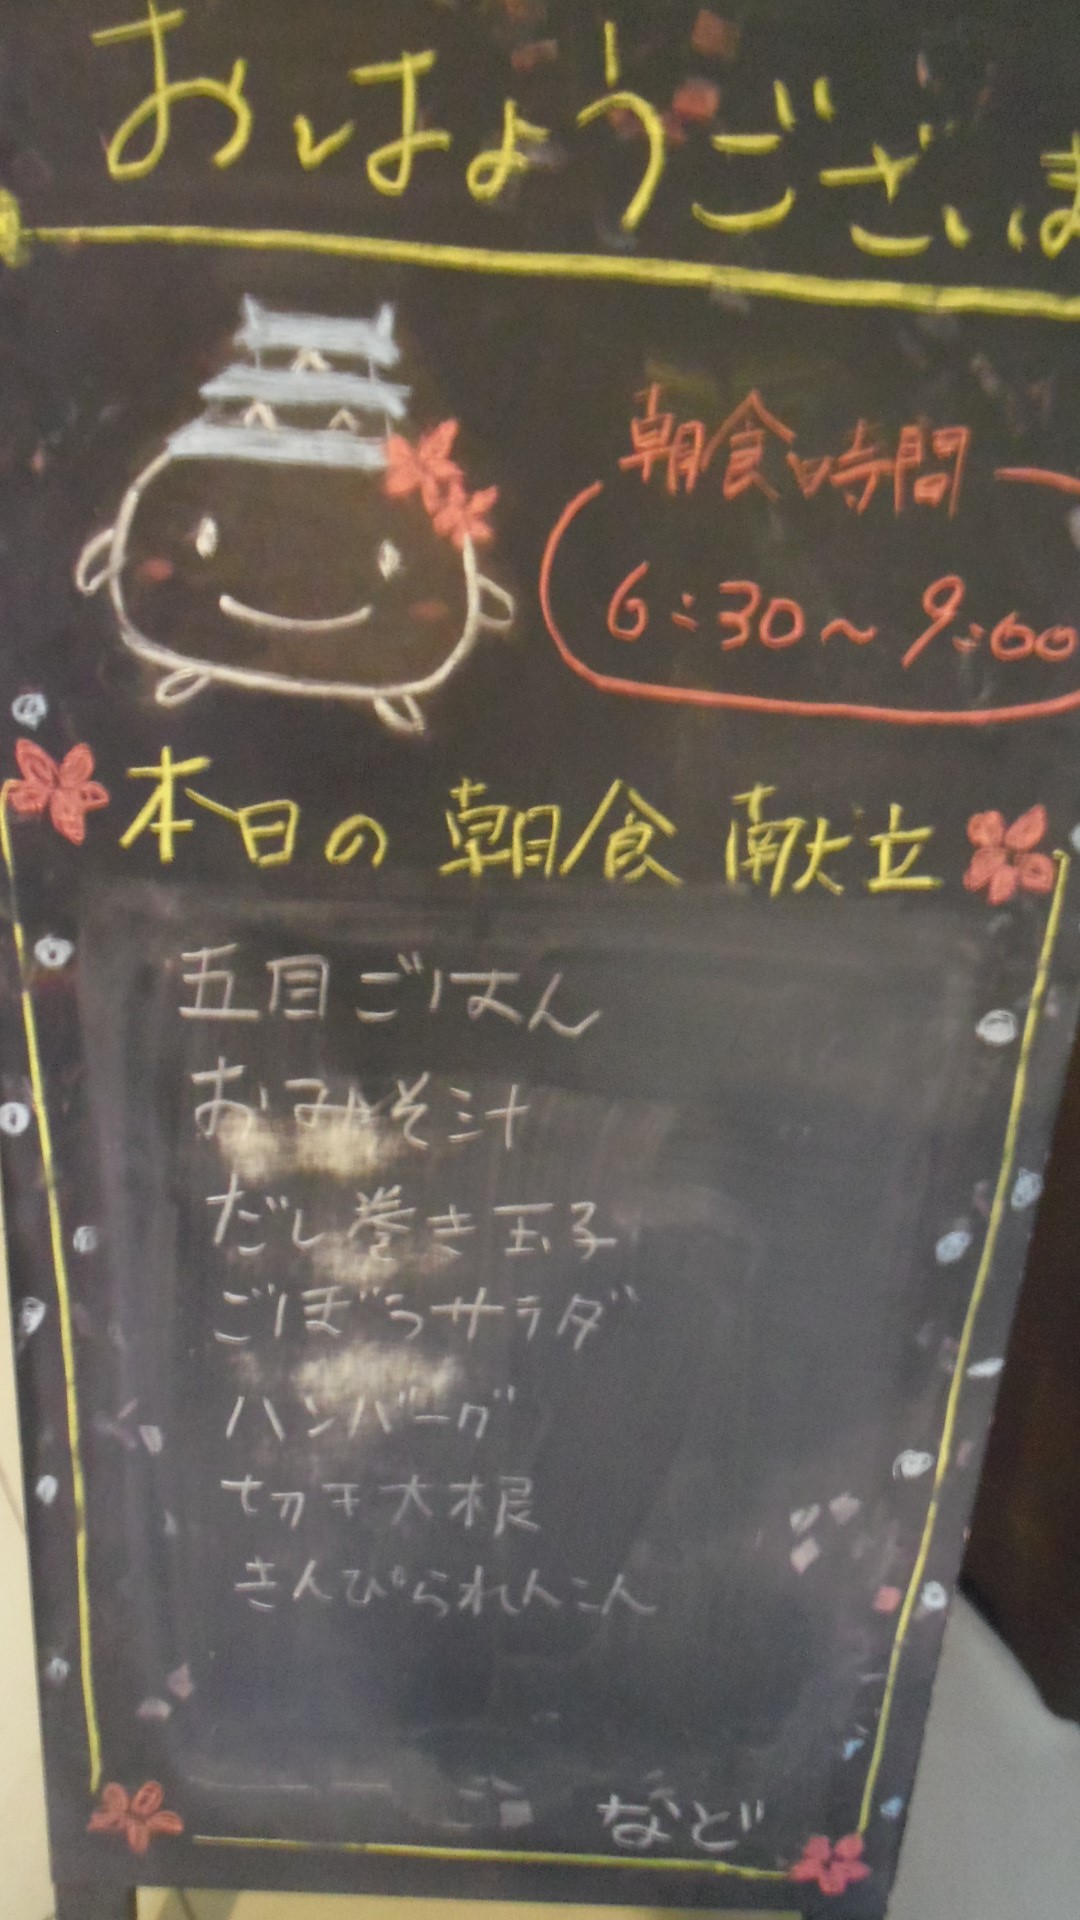 おはようございま
朝食時間
6:30～9:00
本日の朝食献立
五目ごはん
おみそ汁
だし巻き玉子
ごぼうサラダ
ハンバーグ
切干大根
きんぴられんこん
など